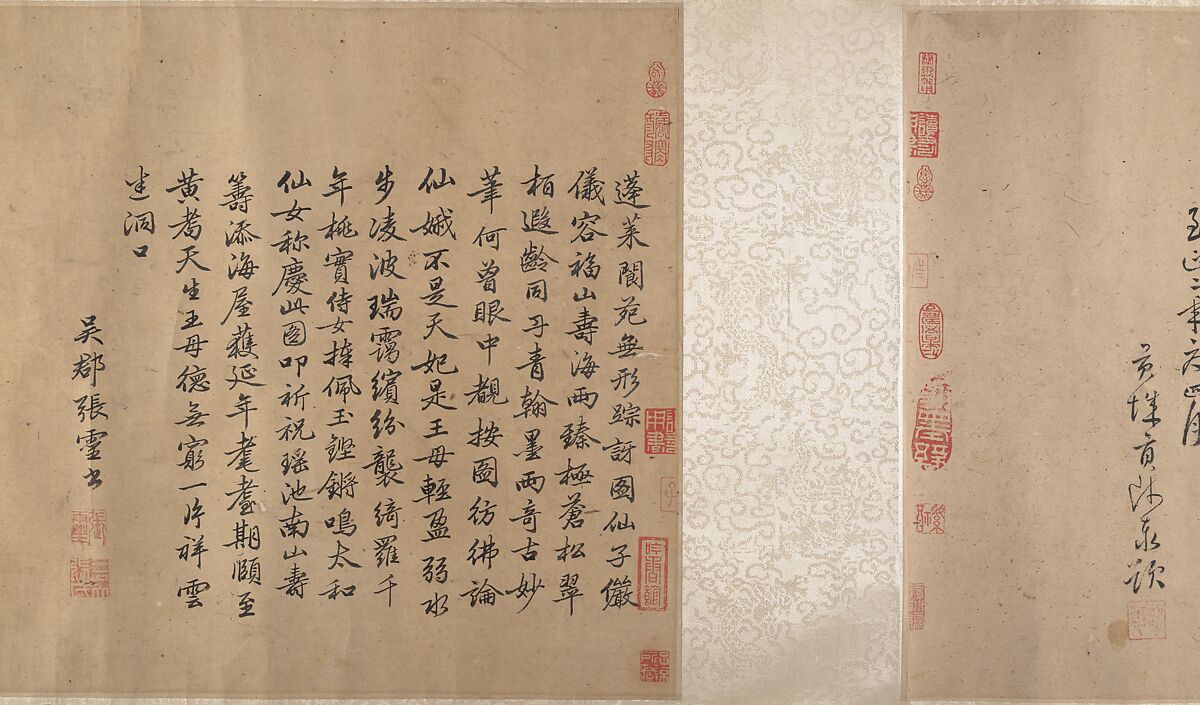 宣城貢師泰題
蓬萊閬苑無形踪訝圖仙子儼
儀容福山壽海兩臻極蒼松翠
栢遐齡同丹青翰墨兩奇古妙
筆何曾眼中覩按圖彷彿論
仙娥不是天妃是王母輕盈弱水
步凌波瑞靄繽紛襲綺羅千
年桃實侍女捧佩玉鏗鏘鳴太和
仙女称慶此圖叩祈祝瑶池南山壽
籌添海屋獲延年耄耋期頤至
黄耇天生王母德無窮一片祥雲
生洞口
吳郡張靈書